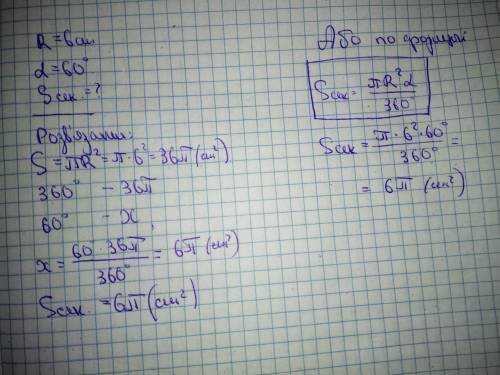 R = 6 см
α = 60°
Sсек = ?
Розв'язання:
S = πR² = π·6² = 36π (см²)
360° – 36π
60° – x
x = 60·36π / 360° = 6π (см²)
Sсек. = 6π (см²)
Або по формулі
Sсек = πR²α / 360
Sсек = π·6²·60° / 360° =
= 6π (см²)